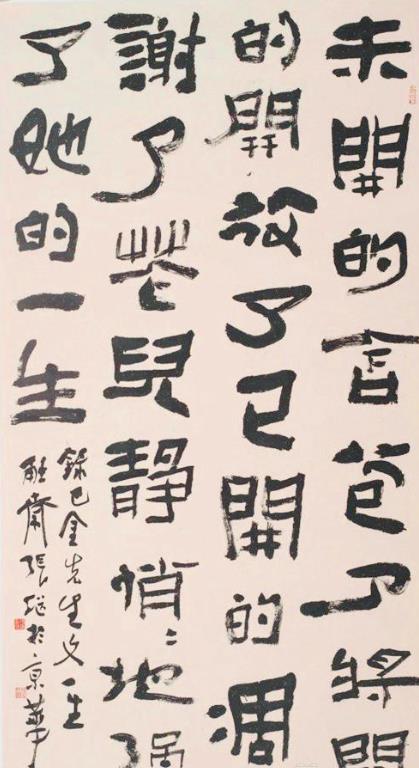 未開的含苞了將開
的開放了已開的凋
謝了花兒靜悄〻地過
了她的一生
錄巴金先生文一
觚齋張繼於京華